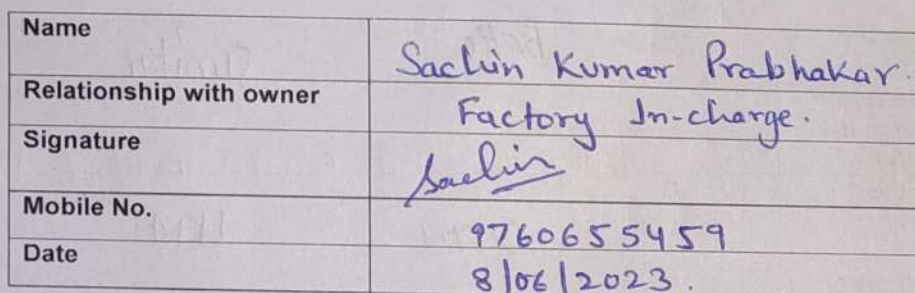 Name Sachin Kumar Prabhakar.
Relationship with owner Factory In-charge.
Signature Sachin
Mobile No. 9760655459
Date 8/06/2023.